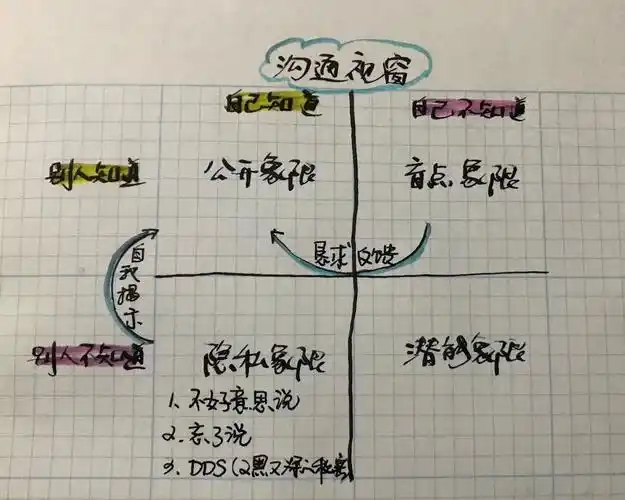 沟通视窗
自己知道
自己不知道
别人知道
公开象限
盲点象限
自我揭示
恳求反馈
别人不知道
隐私象限
潜能象限
1. 不好意思说
2. 忘了说
3. DDS(又黑又深的秘密